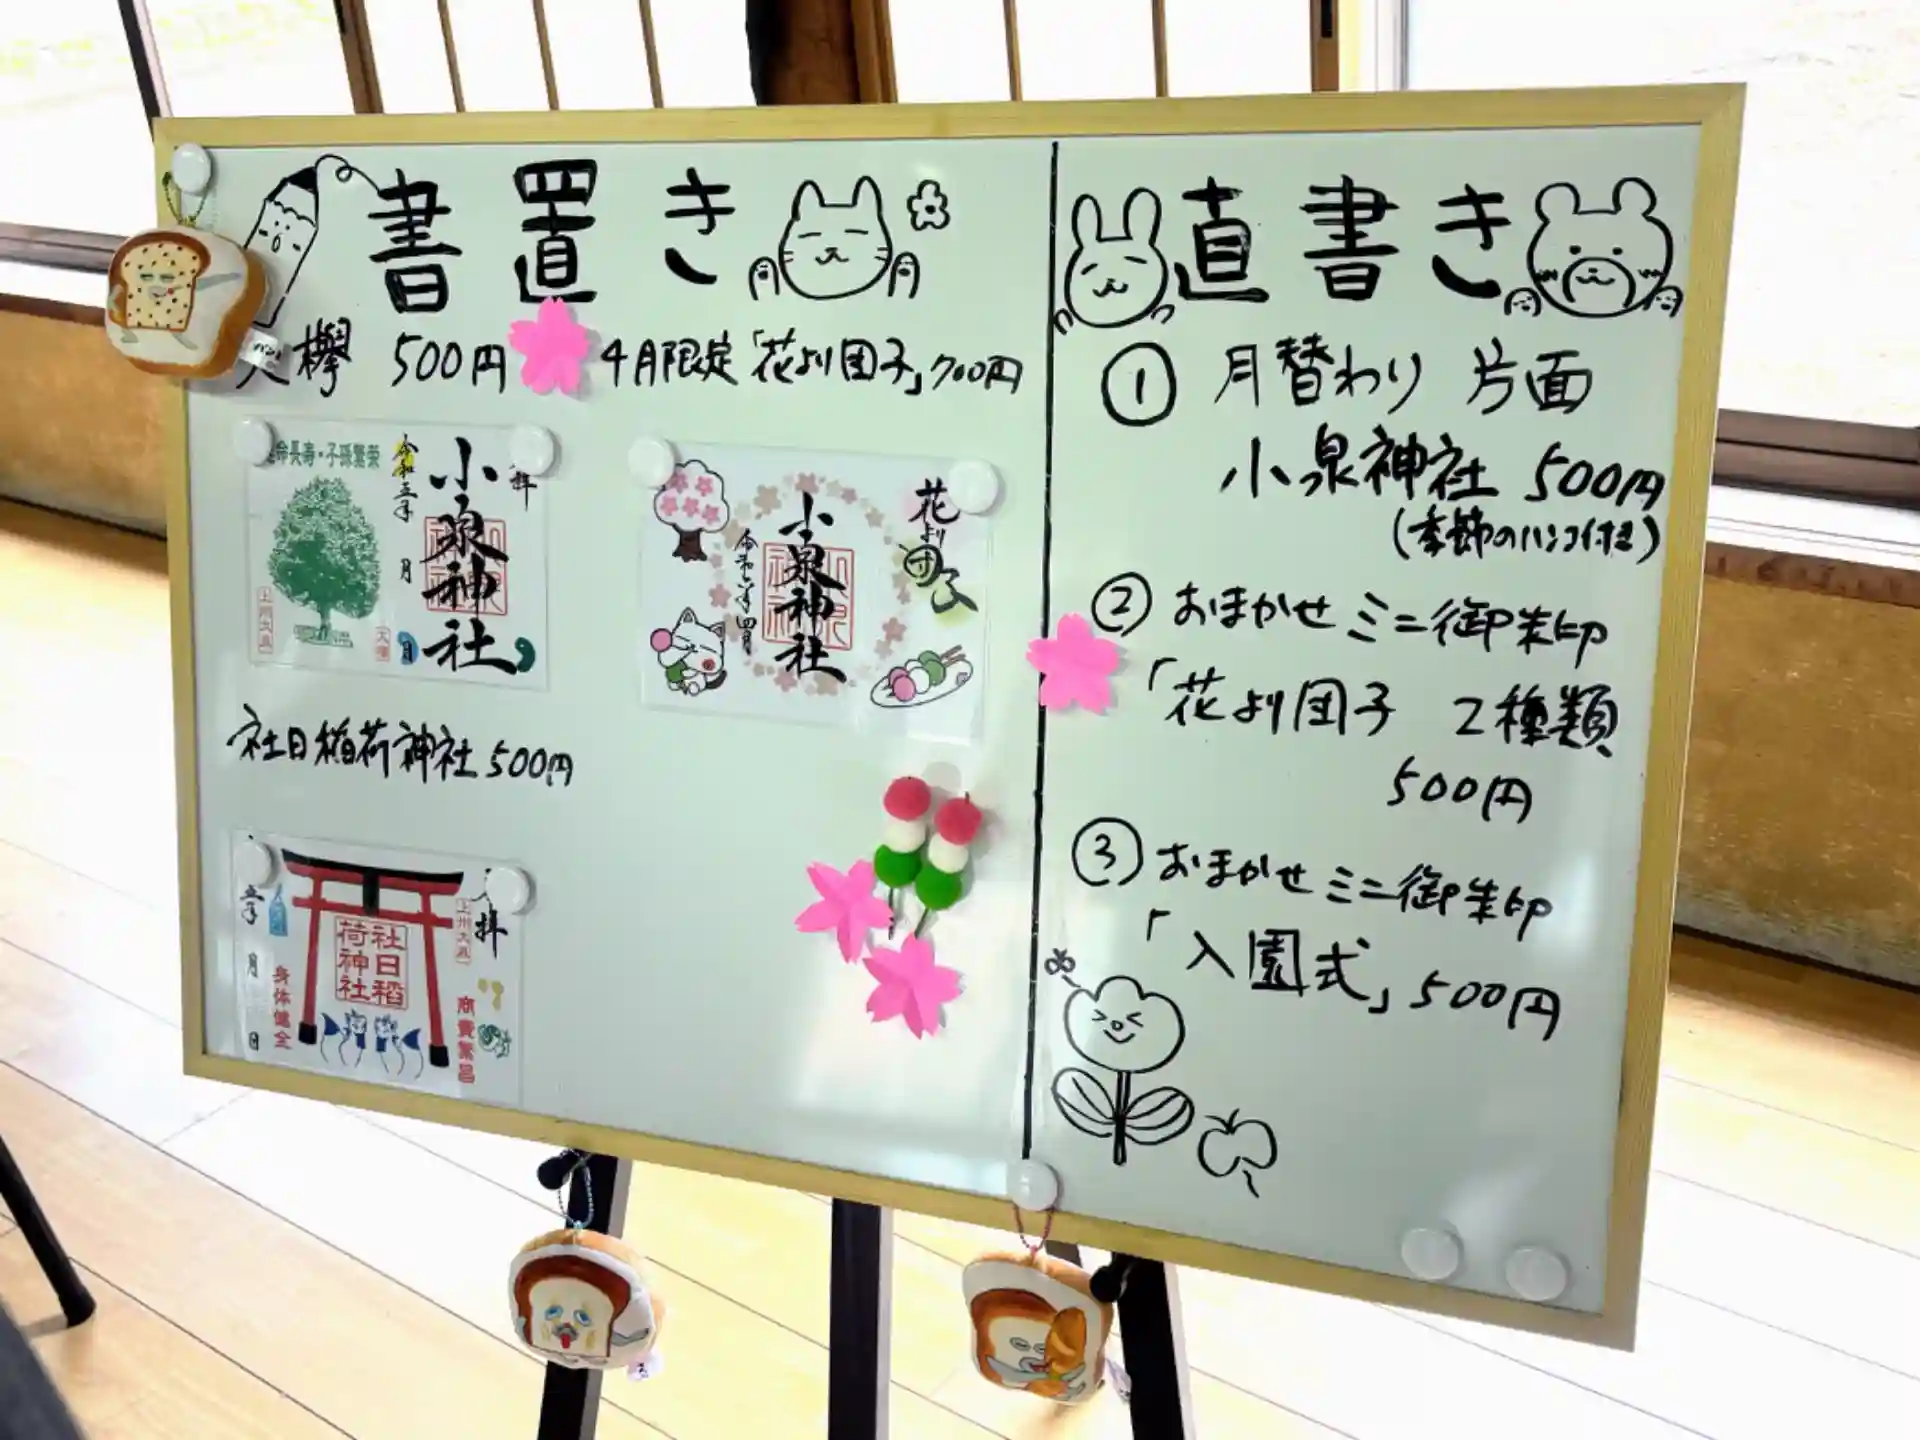 書置き
大欅 500円
4月限定「花より団子」700円
命長寿・子孫繁栄
令和五年 月 日
小泉神社
拝
上州大泉
大欅
花より団子
小泉神社
令和六年四月
社日稲荷神社 500円
年 月 日
社日稲荷神社
上州大泉
拝
身体健全
商売繁昌
直書き
① 月替わり 片面
小泉神社 500円
(季節のハンコ付き)
② おまかせ ミニ御朱印
「花より団子 2種類
500円
③ おまかせ ミニ御朱印
「入園式」500円